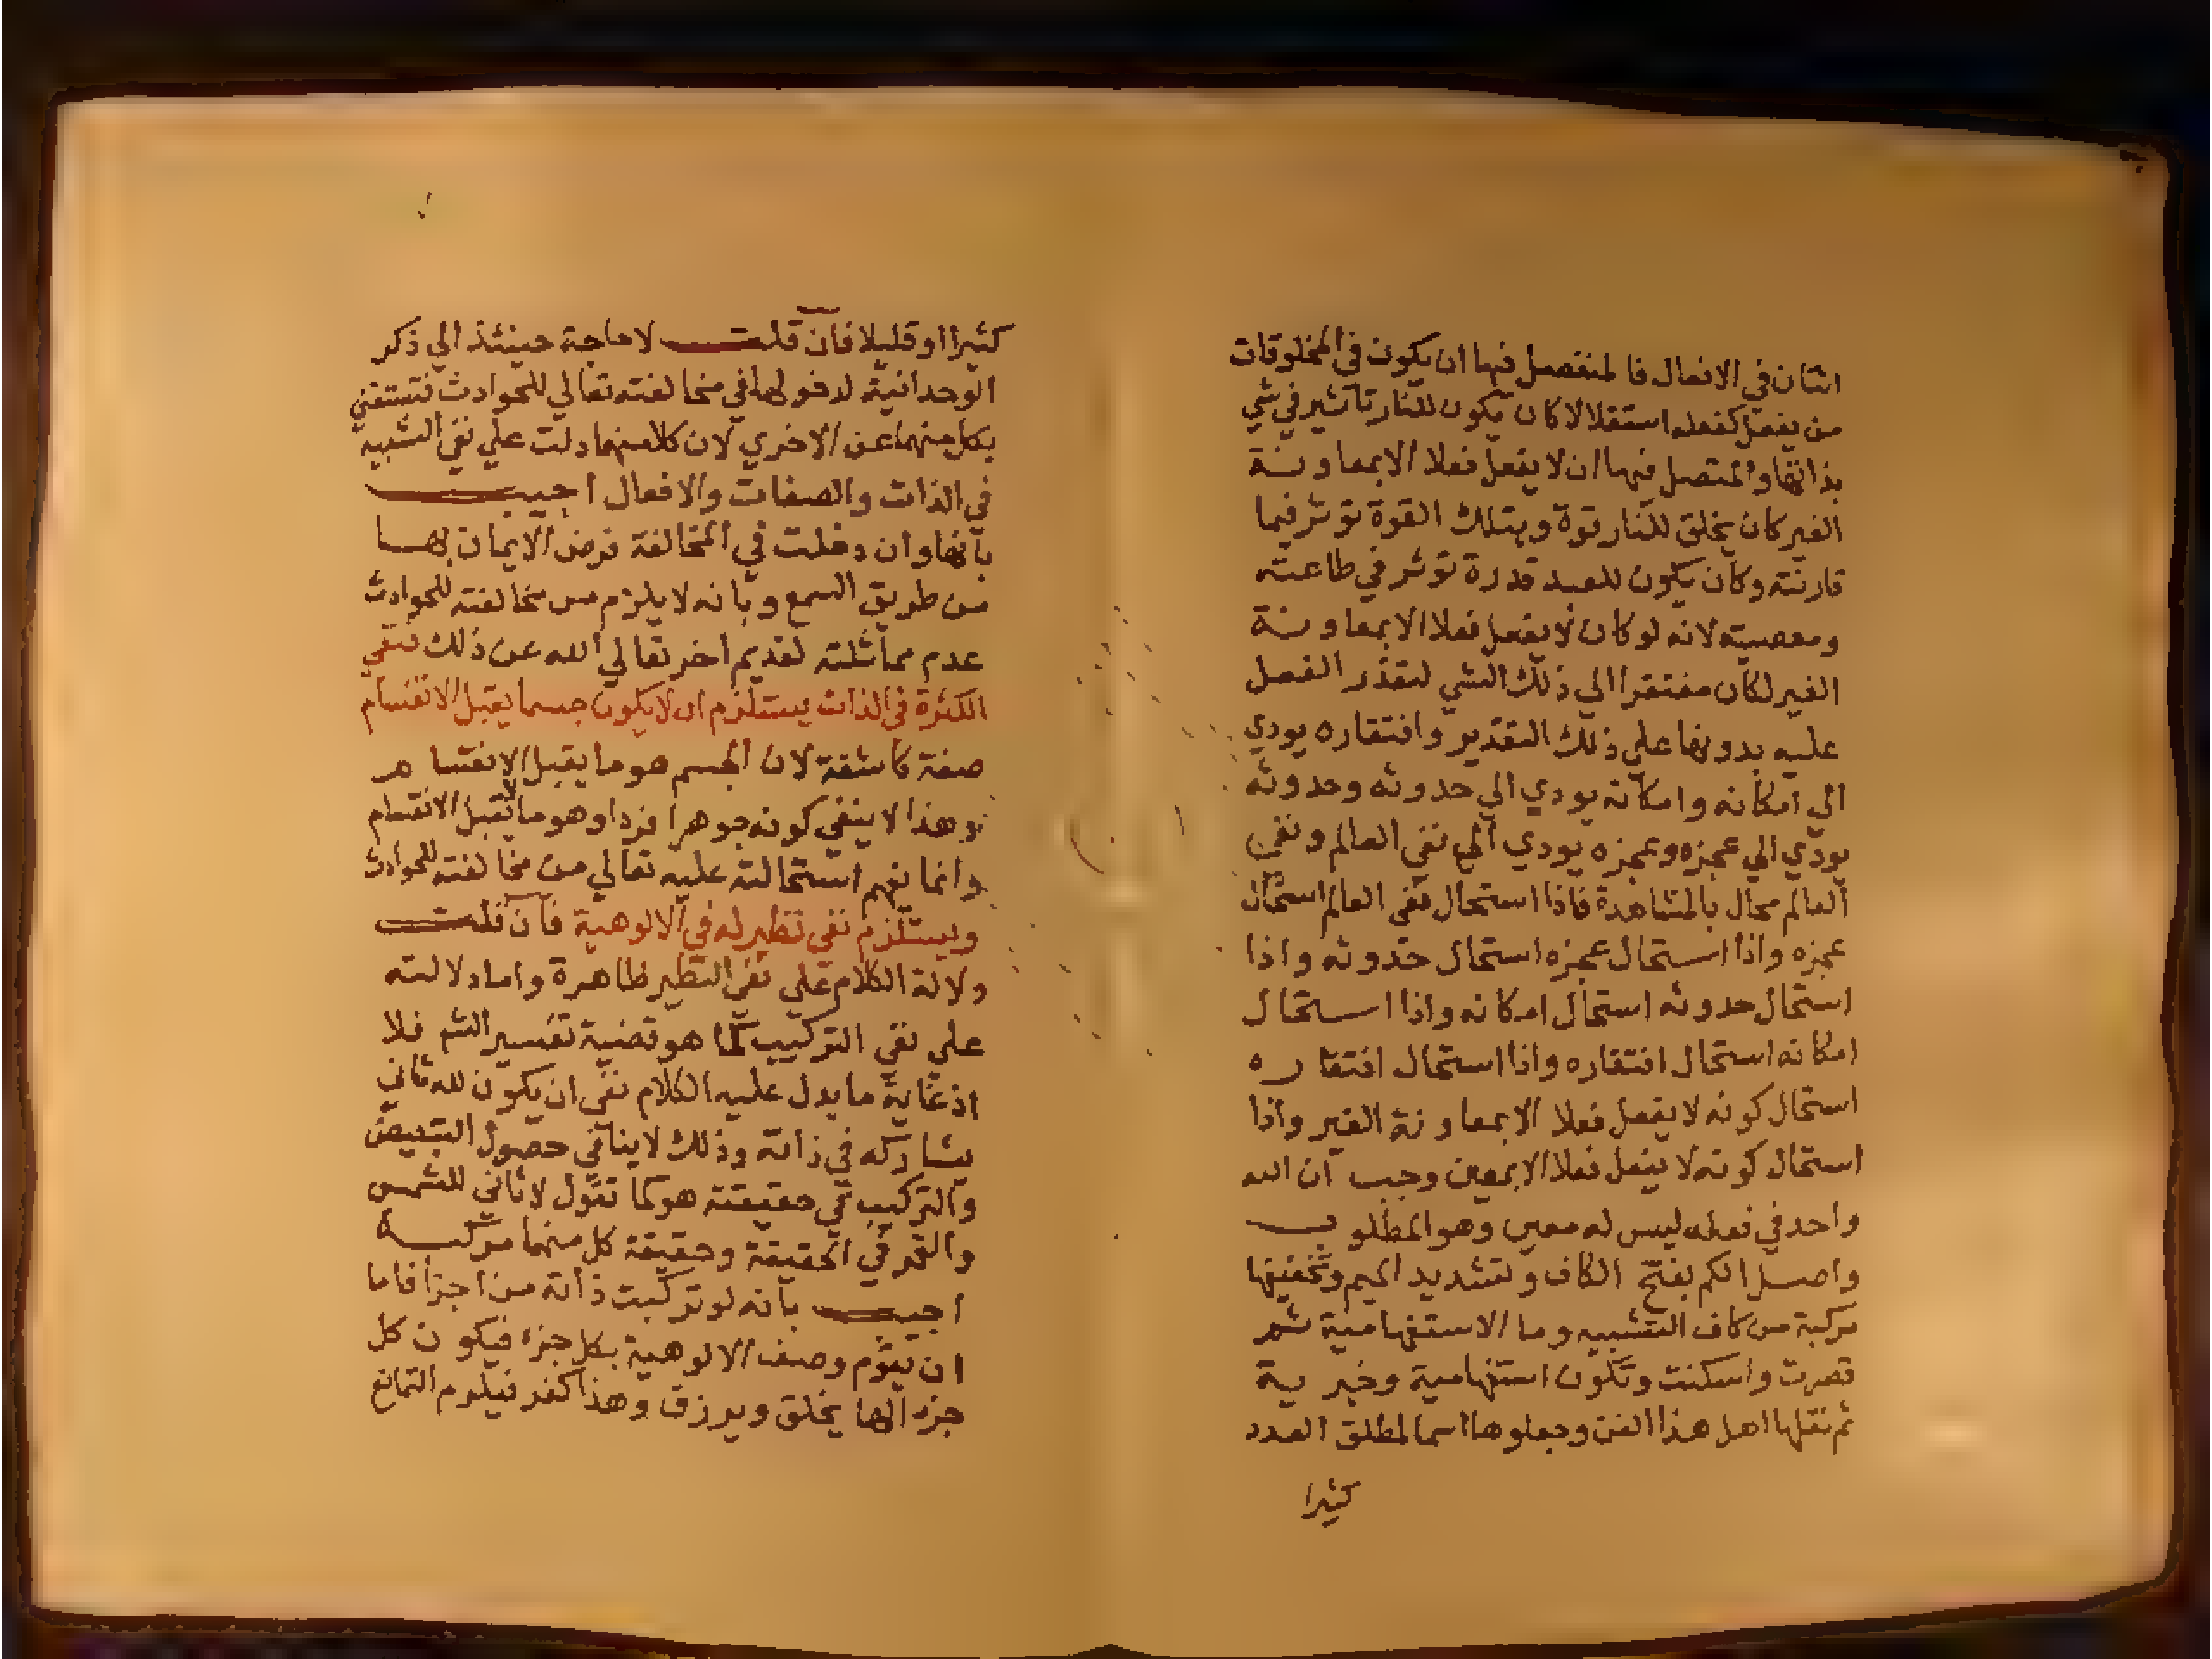 اثنان في الافعال فالمنفصل فيها ان يكون في المخلوقات
من يفعل كفعله استقلالا كان يكون للنار تاثير في شي
بذاتها والمتصل فيها ان لا يفعل فعلا الا بمعاونة
الغير كان يخلق للنار قوة وبتلك القوة توثر فيما
قارنته وكان يكون للعبد قدرة توثر في طاعته
ومعصيته لانه لو كان لا يفعل فعلا الا بمعاونة
الغير لكان مفتقرا الي ذلك الشي لتعذر الفعل
عليه بدونها علي ذلك التقدير وافتقاره يودي
الي امكانه وامكانه يودي الي حدوثه وحدوثه
يودي الي عجزه وعجزه يودي الي نفي العالم ونفي
العالم محال بالمشاهدة فاذا استحال نفي العالم استحال
عجزه واذا استحال عجزه استحال حدوثه واذا
استحال حدوثه استحال امكانه واذا استحال
امكانه استحال افتقاره واذا استحال افتقاره
استحال كونه لا يفعل فعلا الا بمعاونة الغير واذا
استحال كونه لا يفعل فعلا الا بمعين وجب ان الله
واحد في فعله ليس له معين وهو المطلوب
واصل الكم بفتح الكاف وتشديد الميم وتخفيفها
مركبة من كاف التشبيه وما الاستفهامية ثم
قصرت واسكنت وتكون استفهامية وخبرية
ثم نقلها اهل هذا الفن وجعلوها اسما لمطلق العدد
كثيرا
كثيرا او قليلا فان قلت لا حاجة حينئذ الي ذكر
الوحدانية لدخولها في مخالفته تعالي للحوادث فتستغني
بكل منهما عن الاخري لان كلا منهما دلت علي نفي الشبيه
في الذات والصفات والافعال اجيب
بانها وان دخلت في المخالفة فرض الايمان بها
من طريق السمع وبانه لا يلزم من مخالفته للحوادث
عدم مماثلته لقديم اخر تعالي الله عن ذلك فنفي
الكثرة في الذات يستلزم ان لا يكون جسما يقبل الانقسام
صفة كاشفة لان الجسم هو ما يقبل الانقسام
وهذا لا ينفي كونه جوهرا فردا وهو ما لا يقبل الانقسام
وانما يفهم استحالته عليه تعالي من مخالفته للحوادث
ويستلزم نفي نظير له في الالوهية فان قلت
دلالة الكلام علي نفي النظير ظاهرة واما دلالته
علي نفي التركيب كما هو قضية تفسير الشم فلا
اذ غاية ما يدل عليه الكلام نفي ان يكون لله ثاني
يشاركه في ذاته وذلك لا ينافي حصول التبعيض
والتركيب في حقيقته هو كما تقول لا ثاني للشمس
والقمر في الحقيقة وحقيقة كل منهما مركبة
اجيب بانه لو تركبت ذاته من اجزا فاما
ان يقوم وصف الالوهية بكل جزء فيكون كل
جزء الها يخلق ويرزق وهذا كفر فيلزم التمانع